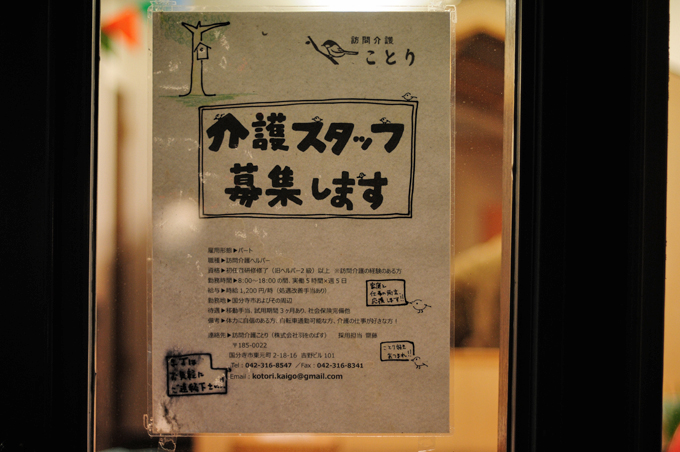 訪問介護
ことり
介護スタッフ
募集します
雇用形態▶パート
職種▶訪問介護ヘルパー
資格▶初任者研修修了（旧ヘルパー2級）以上 ※訪問介護の経験のある方
勤務時間▶8:00〜18:00の間、実働5時間×週5日
給与▶時給1,200円/時（処遇改善手当あり）
勤務地▶国分寺市およびその周辺
待遇▶移動手当、試用期間3ヶ月あり、社会保険完備他
備考▶体力に自信のある方、自転車通勤可能な方、介護の仕事が好きな方！
家庭と
仕事の両立
応援します!!
連絡先▶訪問介護ことり（株式会社 ） 採用担当 齋藤
〒185-0022
国分寺市東元町2-18-16 吉野ビル101
Tel：042-316-8547 ／Fax：042-316-8341
Email：kotori.kaigo@gmail.com
お気軽に
ご連絡下さい